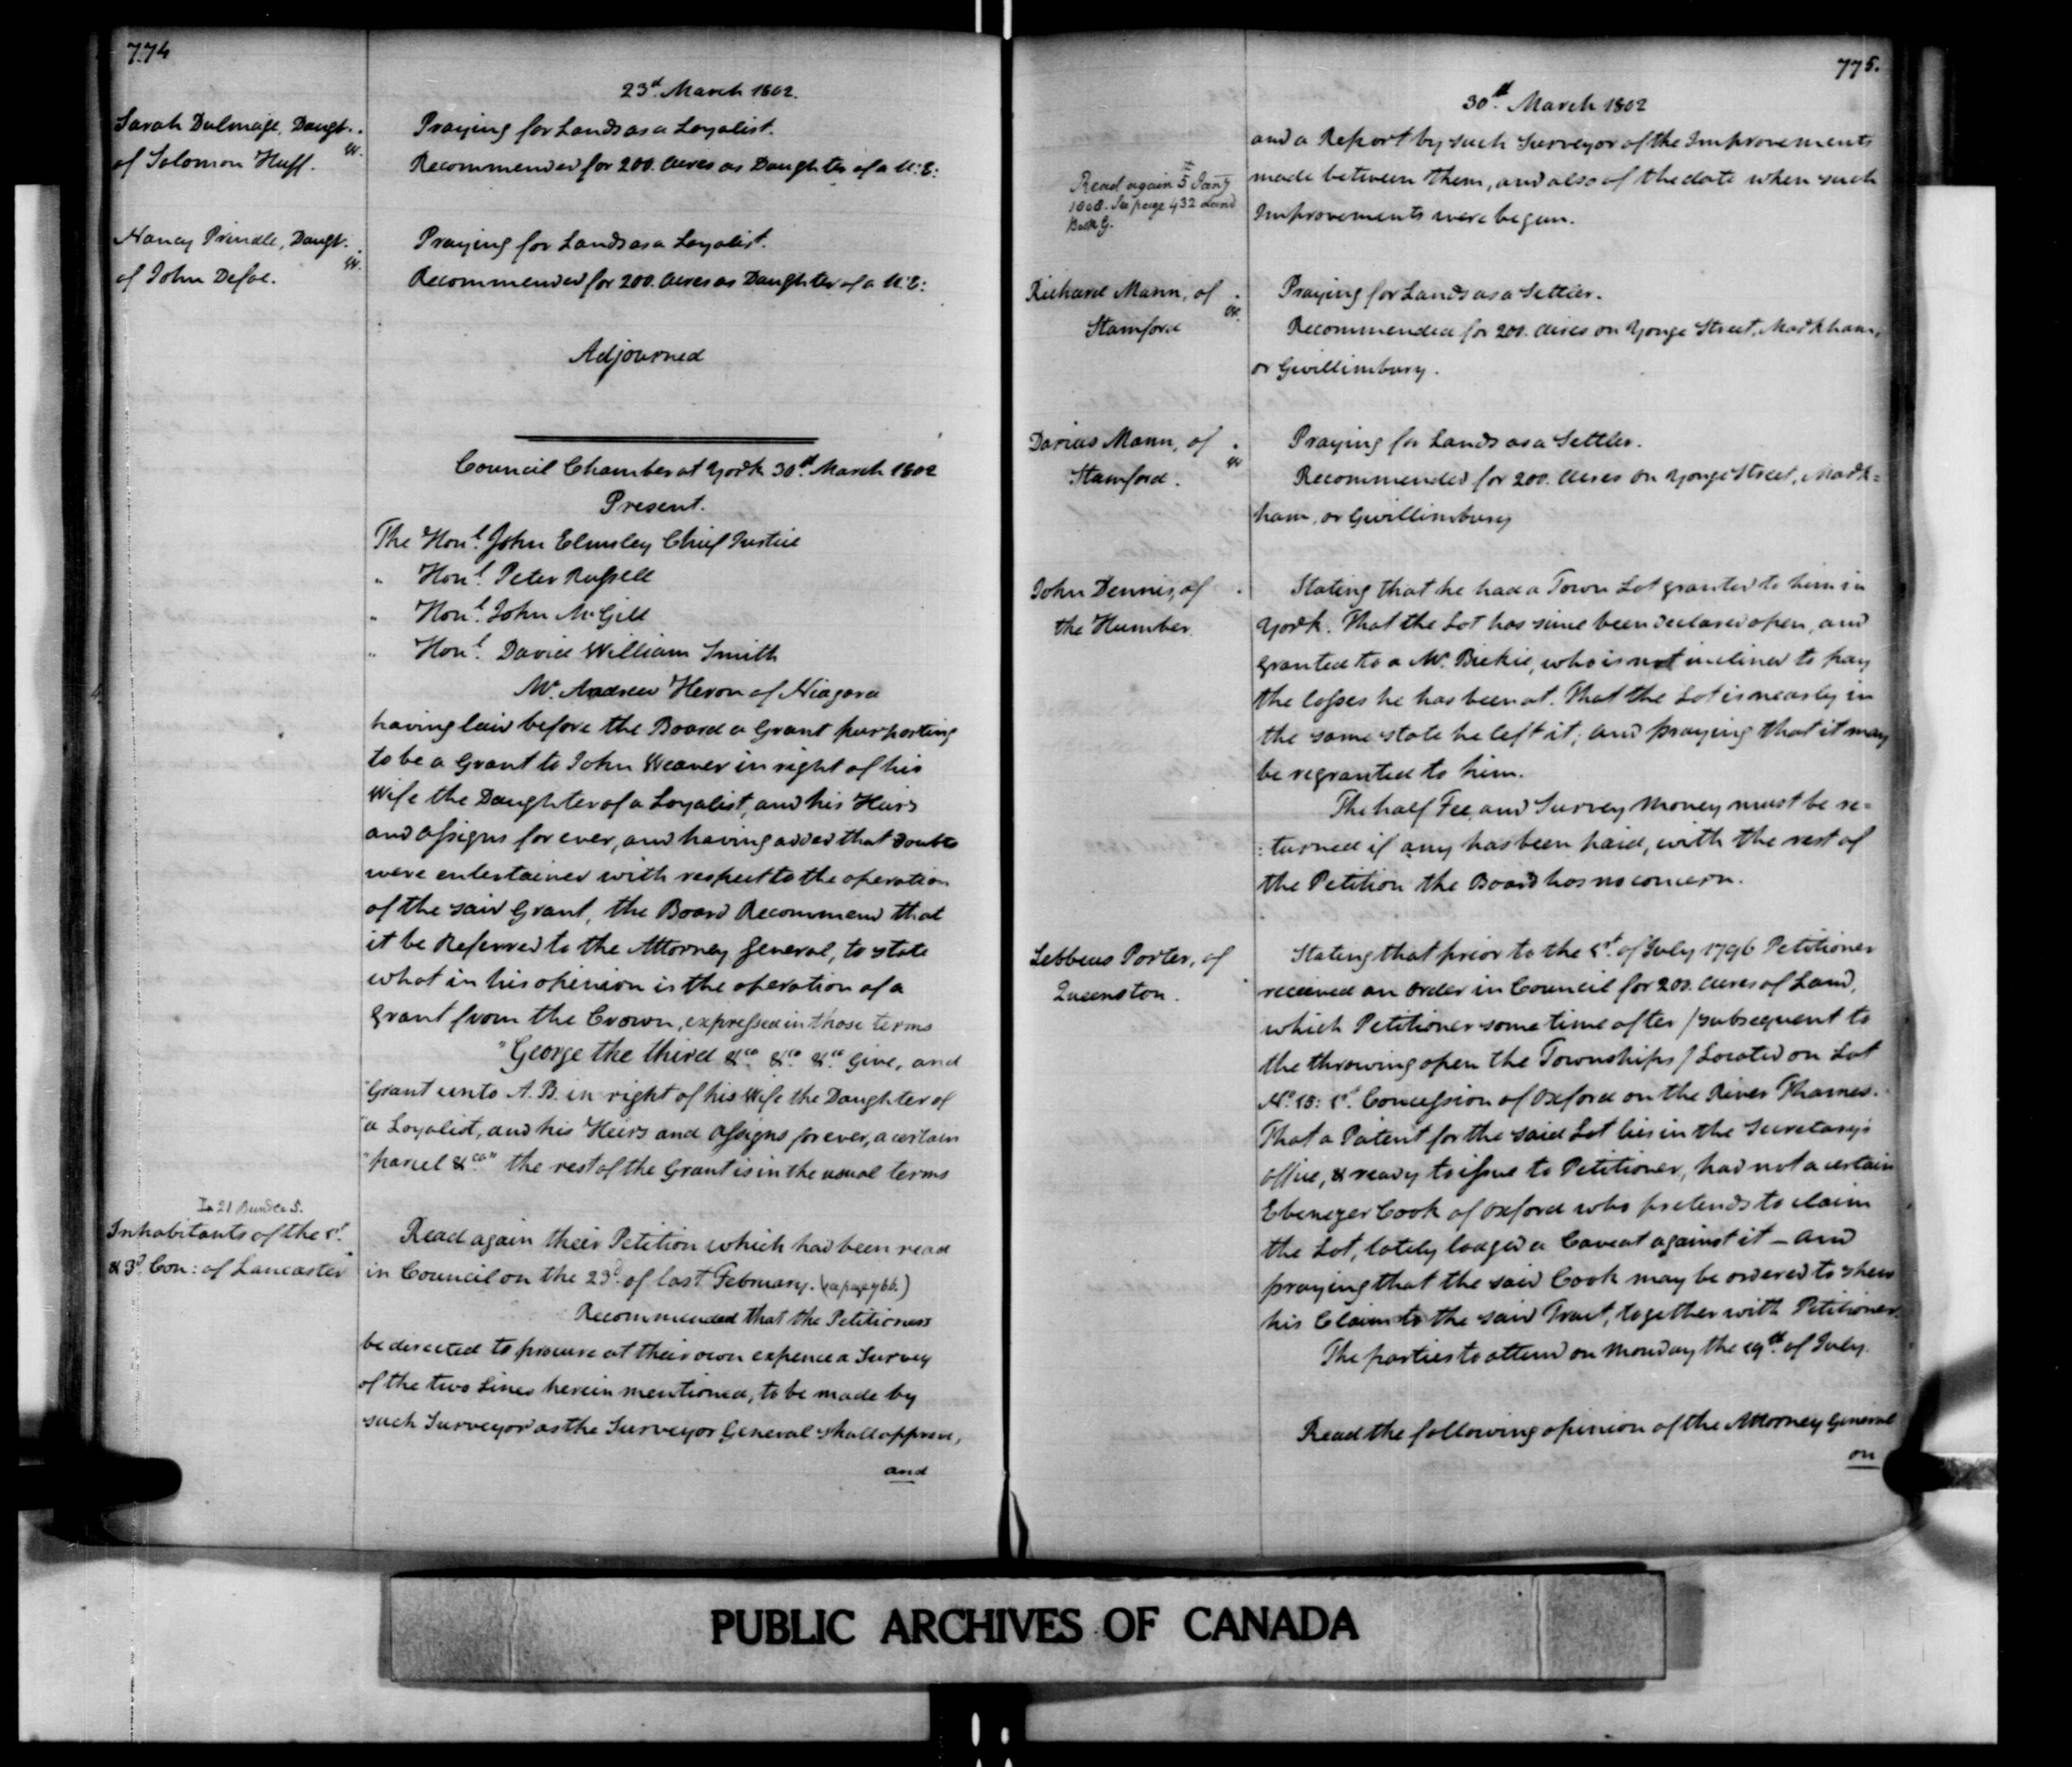 774
23d. March 1802.
Sarah Dulmage, Daugr.
of Solomon Huff.
W.
Praying for Lands as a Loyalist.
Recommended for 200. Acres as Daughter of a U:E:
Nancy Prindle, Daugr.
of John Defoe.
W.
Praying for Lands as a Loyalist.
Recommended for 200. Acres as Daughter of a U:E:
Adjourned
Council Chamber at York 30th. March 1802
Present.
The Honl. John Elmsley Chief Justice
" Honl. Peter Russell
" Honl. John McGill
" Honl. David William Smith
Mr. Andrew Heron of Niagara
having laid before the Board a Grant purporting
to be a Grant to John Weaver in right of his
Wife the Daughter of a Loyalist, and his Heirs
and Assigns for ever, and having added that doubts
were entertained with respect to the operation
of the said Grant, the Board Recommend that
it be Referred to the Attorney General, to state
what in his opinion is the operation of a
Grant from the Crown, expressed in those terms
"George the third &ca. &ca. &ca. Give, and
"Grant unto A. B. in right of his Wife the Daughter of
"a Loyalist, and his Heirs and Assigns for ever, a certain
"parcel &ca" the rest of the Grant is in the usual terms
In 21 Bundle S.
Inhabitants of the 1st.
& 3d. Con: of Lancaster
Read again their Petition which had been read
in Council on the 23d. of last February. (see page 766.)
Recommended that the Petitioners
be directed to procure at their own expence a Survey
of the two Lines herein mentioned, to be made by
such Surveyor as the Surveyor General shall approve,
and
775.
30th March 1802
and a Report by such Surveyor of the Improvements
made between them, and also of the date when such
Improvements were begun.
Read again 5th Jany
1808. See page 432 Land
Book G.
Richard Mann, of
Stamford
W.
Praying for Lands as a Settler.
Recommended for 200. Acres on Yonge Street, Markham,
or Gwillimbury.
Darius Mann, of
Stamford.
W
Praying for Lands as a Settler.
Recommended for 200. Acres on Yonge Street, Mark=
ham, or Gwillimbury
John Dennis, of
the Humber.
Stating that he had a Town Lot granted to him in
York. That the Lot has since been declared open, and
granted to a Mr. Bickie, who is not inclined to pay
the losses he has been at. That the Lot is nearly in
the same state he left it; and praying that it may
be regranted to him.
The half Fee, and Survey Money must be re=
:turned if any has been paid, with the rest of
the Petition the Board has no concern.
Lebbeus Porter, of
Queenston.
Stating that prior to the 1st. of July 1796 Petitioner
received an Order in Council for 200. Acres of Land,
which Petitioner some time after / subsequent to
the throwing open the Townships / Located on Lot
No. 15: 1st. Concession of Oxford on the River Thames.
That a Patent for the said Lot lies in the Secretary's
Office, & ready to issue to Petitioner, had not a certain
Ebenezer Cook of Oxford who pretends to claim
the Lot, lately lodged a Caveat against it – and
praying that the said Cook may be ordered to shew
his Claim to the said Tract, together with Petitioner.
The parties to attend on Monday the 19th. of July.
Read the following opinion of the Attorney General
on
PUBLIC ARCHIVES OF CANADA